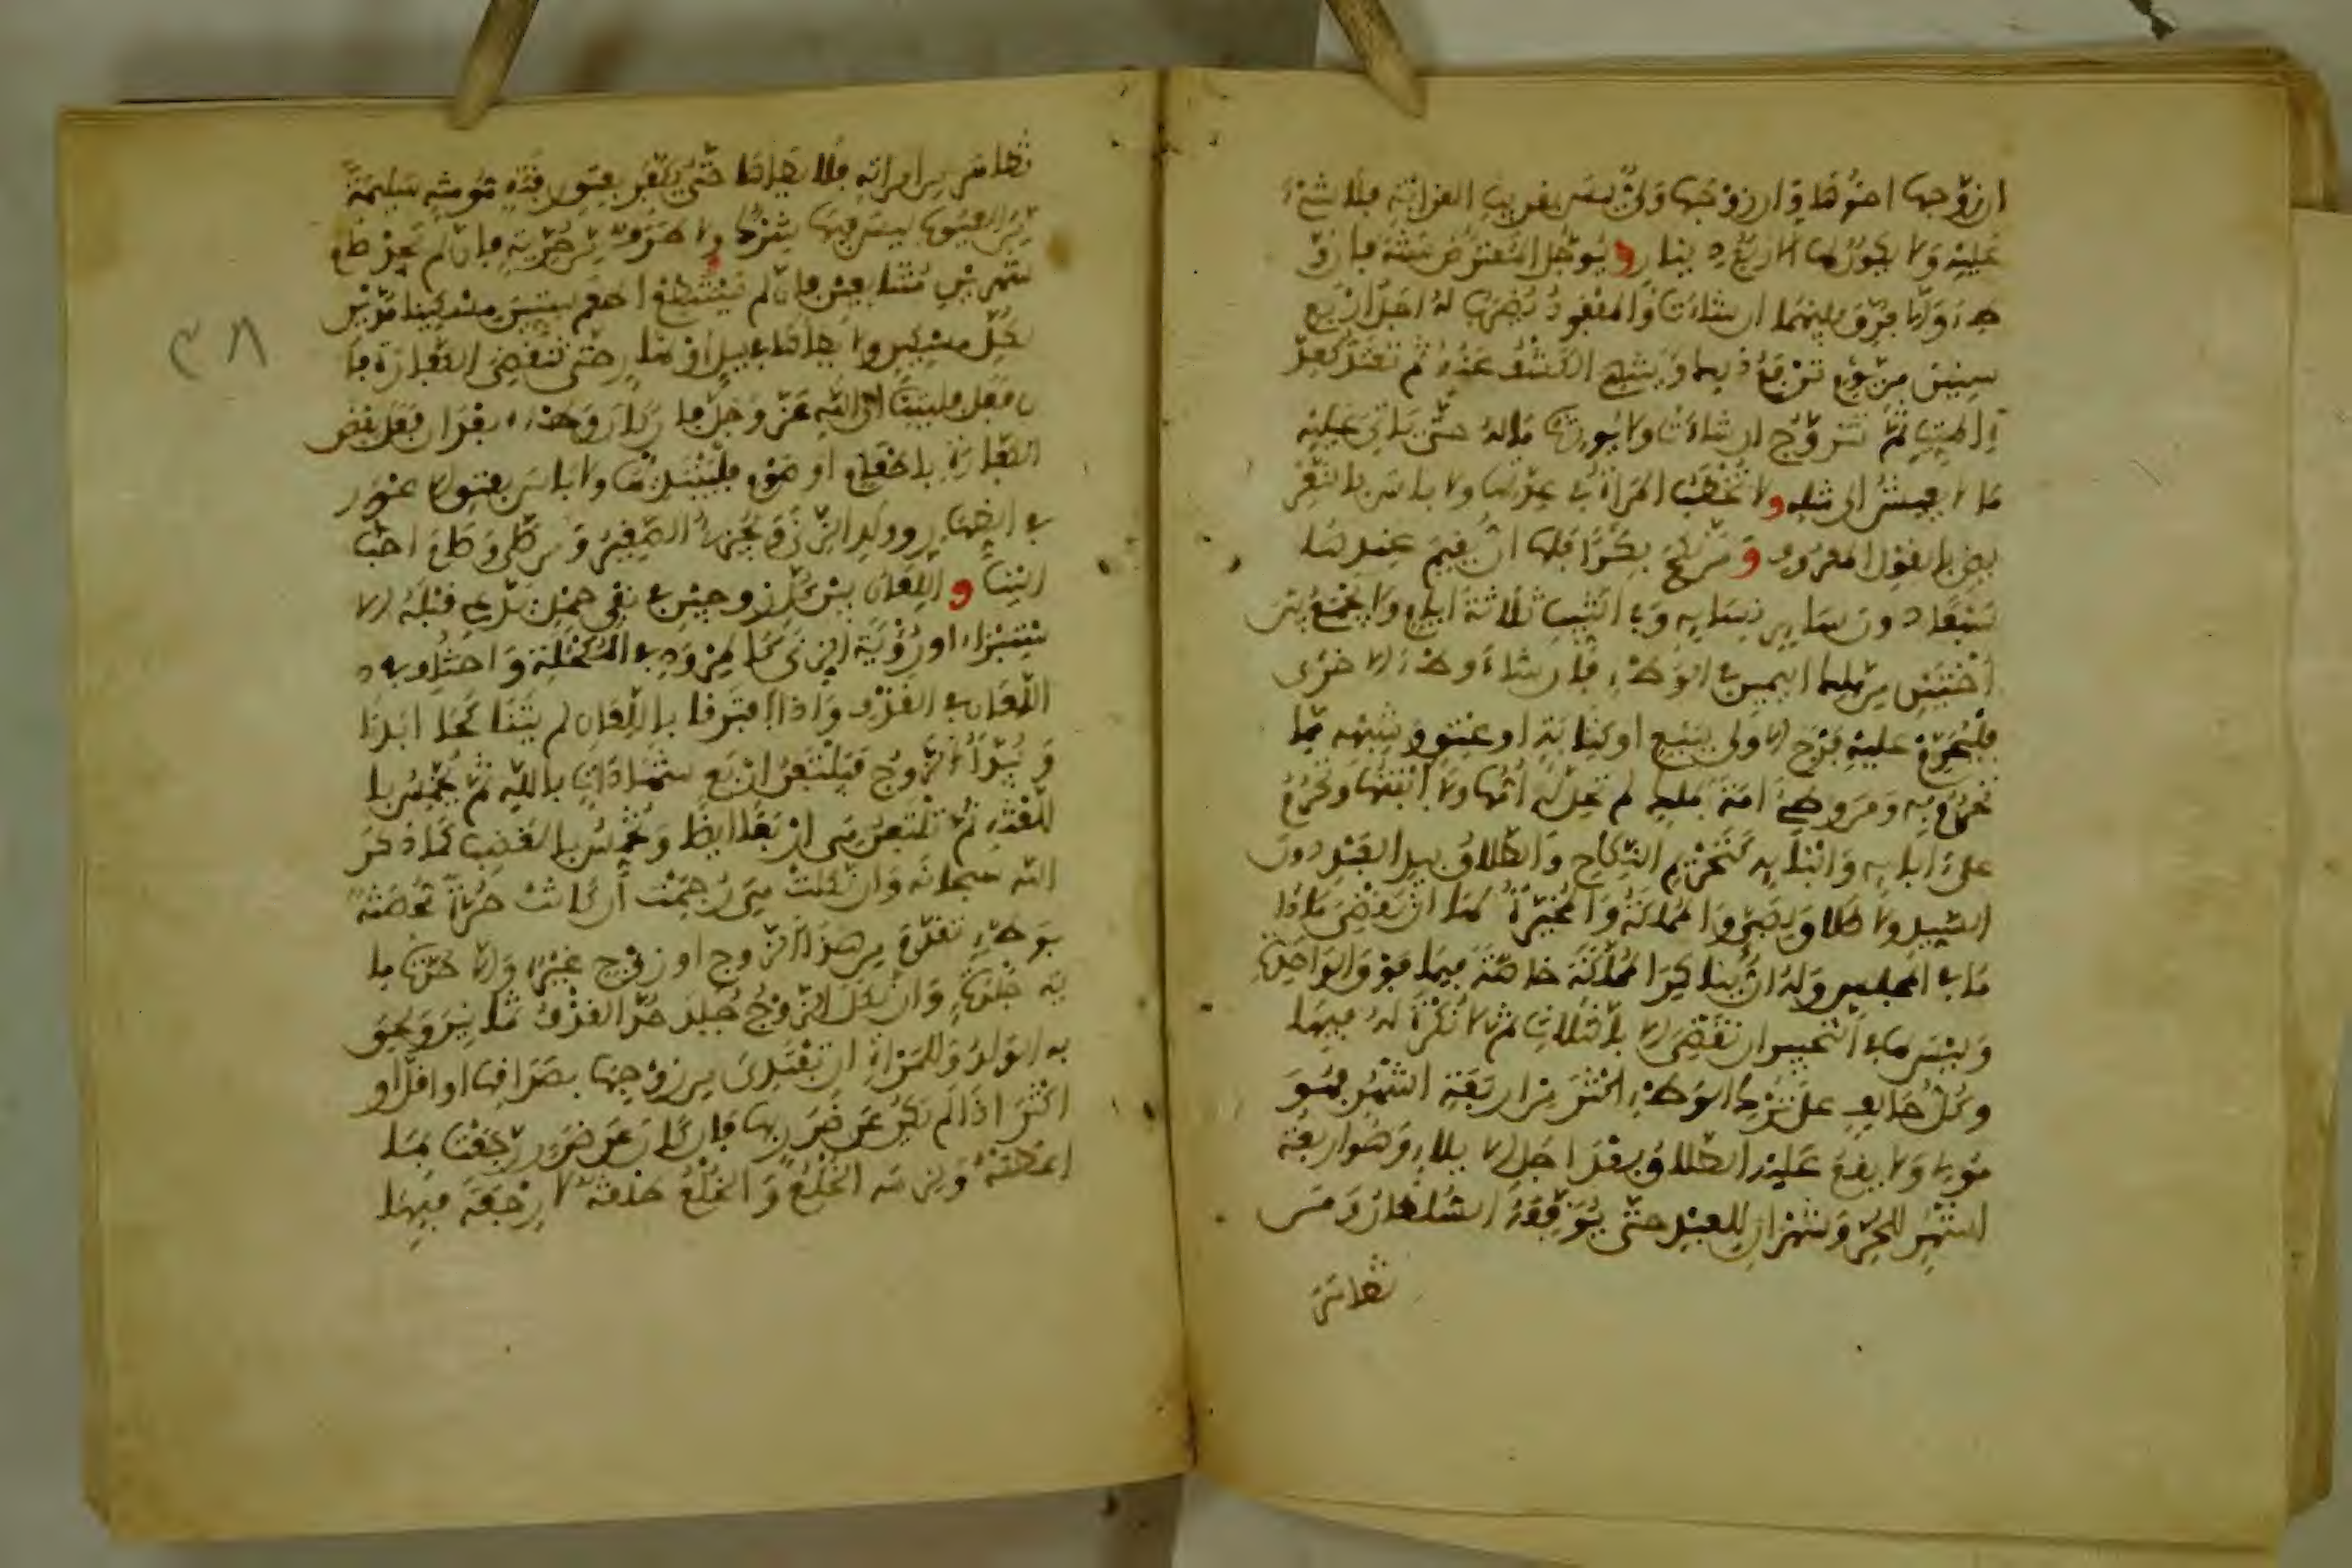 ان زوجها اخوها وان زوجها ولي ليس بقريب القرابة فلا شيء
عليه ولا يكون لها الا ربع دينار ويؤجل المعترض سنة فان و
طء والا فرق بينهما ان شاءت والمفقود يضرب له اجل اربع
سنين من يوم ترفع ذلك وينتهي الكشف عنه ثم تعتد كعدة
الميت ثم تتزوج ان شاءت ولا يورث ماله حتى ياتي عليه
ما لا يعيش الى مثله ولا تخطب المراة في عدتها ولا باس بالتعر
يض بالقول المعروف ومن نكح بكرا فلها ان يقيم عندها
سبعا دون ساير نسايه وفي الثيب ثلاثة ايام ولا يجمع بين
اختين من ملك اليمين في الوطء فان شاء وطء الاخرى
فليحرم عليه فرج الاولى ببيع او كتابة او عتق وشبهه مما
تحرم به ومن وطئ امة بملك لم تحل له امها ولا ابنتها وتحرم
على ابايه وابنايه كتحريم النكاح والطلاق بيد العبد دون
السيد ولا طلاق لصبي والمملكة والمخيرة لهما ان يقضيا ما دا
ما في المجلس وله ان يناكر المملكة خاصة فيما فوق الواحدة
وليس لها في التخيير ان تقضي الا بالثلاث ثم لا نكرة له فيها
وكل حالف على ترك الوطء اكثر من اربعة اشهر فهو
مول ولا يقع عليه الطلاق بعد اجل الايلاء وهو اربعة
اشهر للحر وشهران للعبد حتى يوقفه السلطان ومن
تظاهر
تظاهر من امراته فلا يطاها حتى يكفر بعتق رقبة مومنة سليمة
من العيوب ليس فيها شرك ولا طرف من حرية فان لم يجد صام
شهرين متتابعين فان لم يستطع اطعم ستين مسكينا مدين
لكل مسكين ولا يطاها في ليل او نهار حتى تنقضي الكفارة فا
ن فعل فليتب الى الله عز وجل فان كان وطئه بعد ان فعل بعض
الكفارة باطعام او صوم فليبتدئها ولا باس بعتق الاعور
في الظهار وولد الزنى ويجزئ الصغير ومن صلى وصام احب
الينا واللعان بين كل زوجين في نفي حمل يدعى قبله الا
ستبراء او رؤية الزنى كالمرود في المكحلة واختلف في
اللعان في القذف واذا افترقا باللعان لم يتناكحا ابدا
ويبدا الزوج فيلتعن اربع شهادات بالله ثم يخمس با
للعنة ثم تلتعن هي اربعا ايضا وتخمس بالغضب كما ذكر
الله سبحانه وان نكلت هي رجمت ان كانت حرة محصنة
بوطء تقدم من هذا الزوج او زوج غيره والا جلدت ما
ية جلدة وان نكل الزوج جلد حد القذف ثمانين ولحق
به الولد وللمراة ان تفتدي من زوجها بصداقها او اقل او
اكثر اذا لم يكن عن ضرر بها فان كان عن ضرر رجعت بما
اعطته ولزمه الخلع والخلع طلقة لا رجعة فيها
٣٨